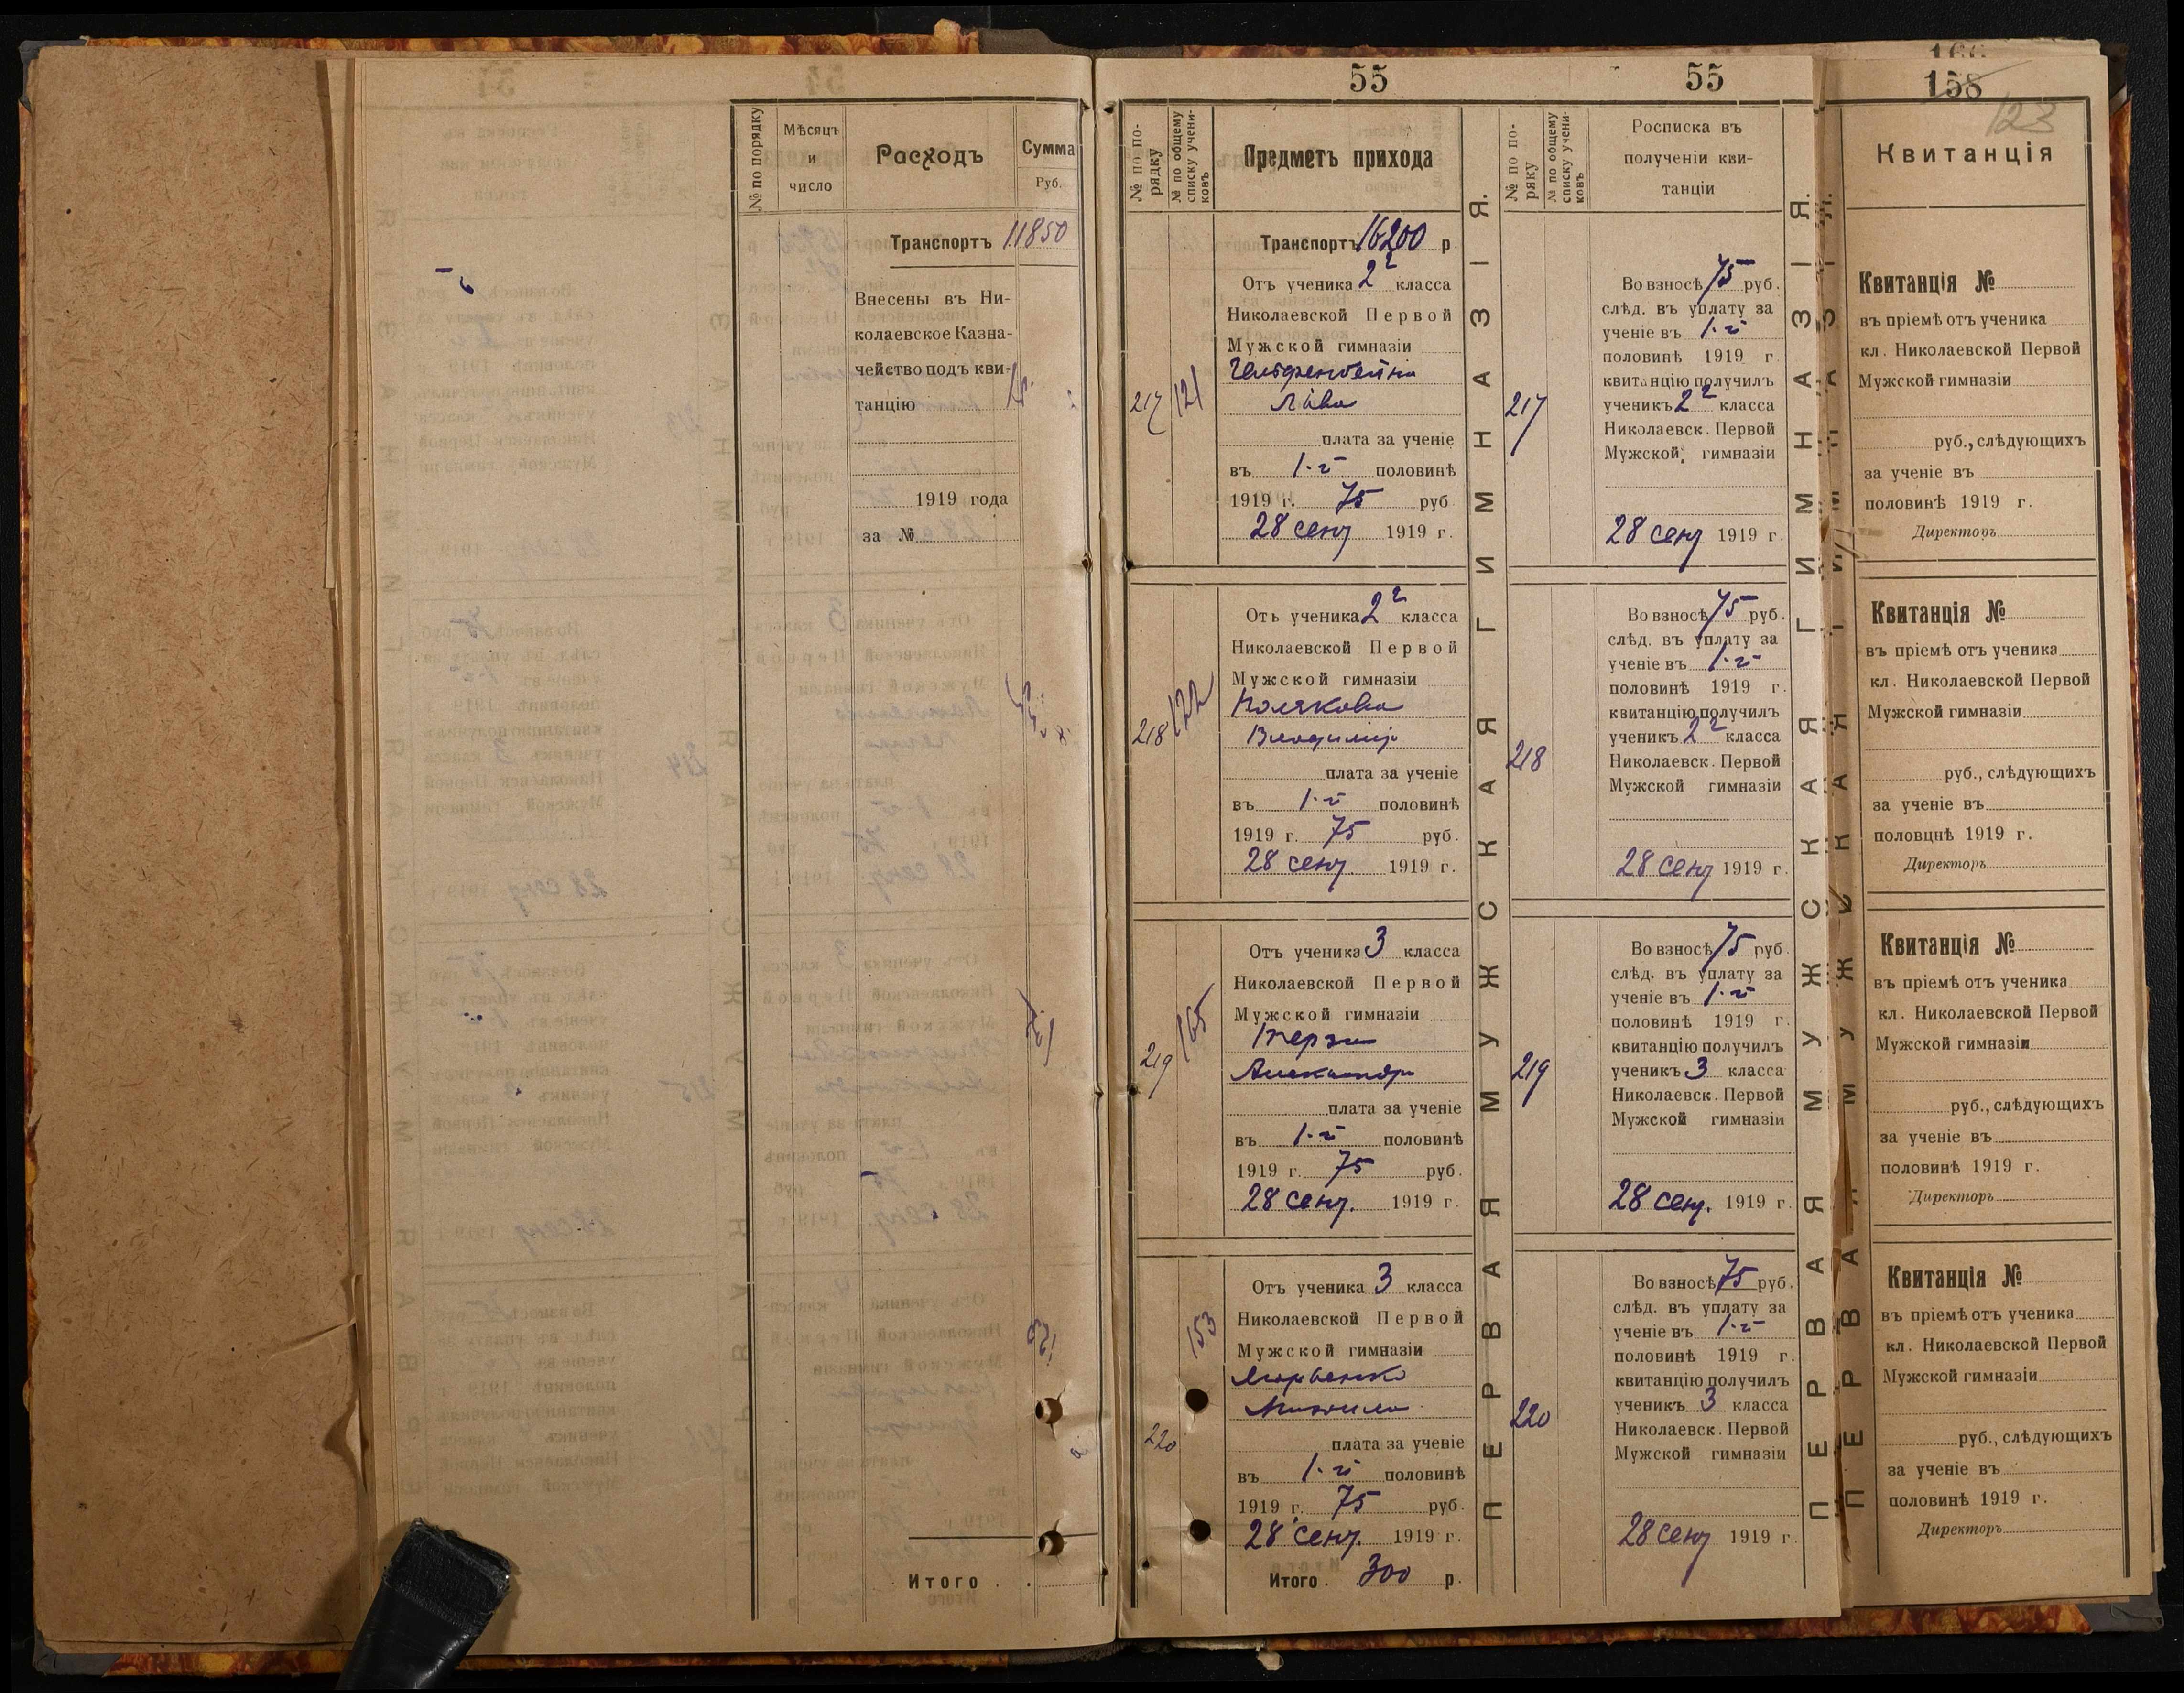 № по порядку
Мѣсяцъ
и
число
Расходъ
Сумма
Руб.
Транспортъ 11850
Внесены въ Ни-
колаевское Казна-
чейство подъ кви-
танцію
1919 года
за №
Итого . .
55
№ по по-
рядку
№ по общему
списку учени-
ковъ
Предметъ прихода
Транспортъ 16200 р.
217
121
Отъ ученика 2² класса
Николаевской Первой
Мужской гимназіи
плата за ученіе
въ 1-й половинѣ
1919 г. 75 руб
28 сент 1919 г.
218
122
Отъ ученика 2² класса
Николаевской Первой
Мужской гимназіи
Полякова
Владиміръ
плата за ученіе
въ 1-й половинѣ
1919 г. 75 руб.
28 сент. 1919 г.
219
165
Отъ ученика 3 класса
Николаевской Первой
Мужской гимназіи
Терзи
Александръ
плата за ученіе
въ 1-й половинѣ
1919 г. 75 руб.
28 сент. 1919 г.
220
153
Отъ ученика 3 класса
Николаевской Первой
Мужской гимназіи
Михаила
плата за ученіе
въ 1-й половинѣ
1919 г. 75 руб.
28 сент. 1919 г.
Итого . 300 р.
ПЕРВАЯ МУЖСКАЯ ГИМНАЗІЯ.
55
№ по по-
ряку
№ по общему
списку учени-
ковъ
Росписка въ
полученіи кви-
танціи
217
Во взносѣ 75 руб.
слѣд. въ уплату за
ученіе въ 1-й
половинѣ 1919 г.
квитанцію получилъ
ученикъ 2² класса
Николаевск. Первой
Мужской гимназіи
28 сент 1919 г.
218
Во взносѣ 75 руб.
слѣд. въ уплату за
ученіе въ 1-й
половинѣ 1919 г.
квитанцію получилъ
ученикъ 2² класса
Николаевск. Первой
Мужской гимназіи
28 сент 1919 г.
219
Во взносѣ 75 руб
слѣд. въ уплату за
ученіе въ 1-й
половинѣ 1919 г.
квитанцію получилъ
ученикъ 3 класса
Николаевск. Первой
Мужской гимназіи
28 сент. 1919 г.
220
Во взносѣ 75 руб.
слѣд. въ уплату за
ученіе въ 1-й
половинѣ 1919 г.
квитанцію получилъ
ученикъ 3 класса
Николаевск. Первой
Мужской гимназіи
28 сент 1919 г.
ПЕРВАЯ МУЖСКАЯ ГИМНАЗІЯ.
158
123
Квитанція
Квитанція №
въ пріемѣ отъ ученика
кл. Николаевской Первой
Мужской гимназіи
руб., слѣдующихъ
за ученіе въ
половинѣ 1919 г.
Директоръ
Квитанція №
въ пріемѣ отъ ученика
кл. Николаевской Первой
Мужской гимназіи
руб., слѣдующихъ
за ученіе въ
половцнѣ 1919 г.
Директоръ
Квитанція №
въ пріемѣ отъ ученика
кл. Николаевской Первой
Мужской гимназіи
руб., слѣдующихъ
за ученіе въ
половинѣ 1919 г.
Директоръ
Квитанція №
въ пріемѣ отъ ученика
кл. Николаевской Первой
Мужской гимназіи
руб., слѣдующихъ
за ученіе въ
половинѣ 1919 г.
Директоръ